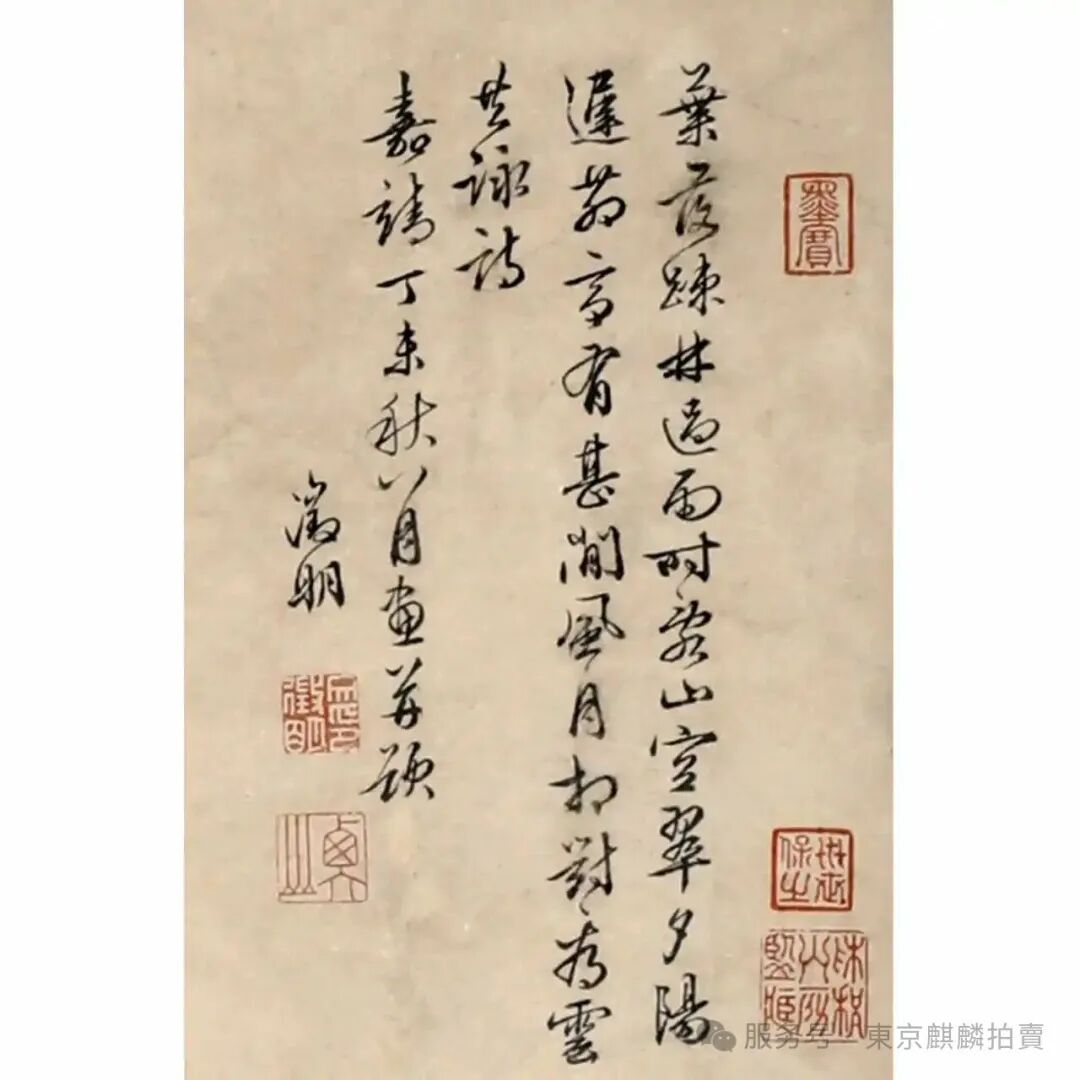 墨寶
葉落踈林過雨時家山空翠夕陽
遲茆亭有甚閒風月相對為雲
共詠詩
嘉靖丁未秋八月畫並題
徵明
服务号 東京麒麟拍賣